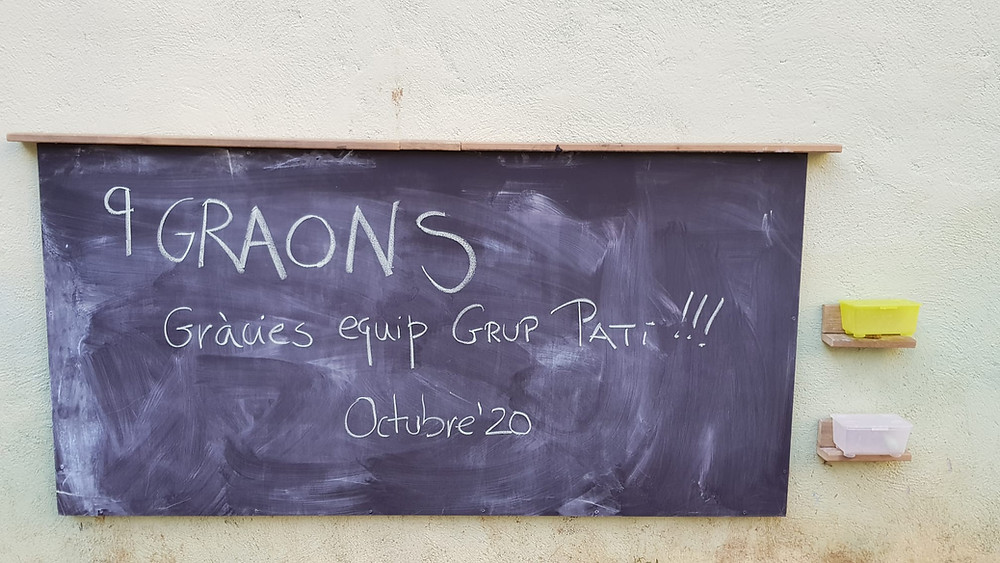 9 GRAONS
Gràcies equip GRUP PATi !!!
Octubre'20